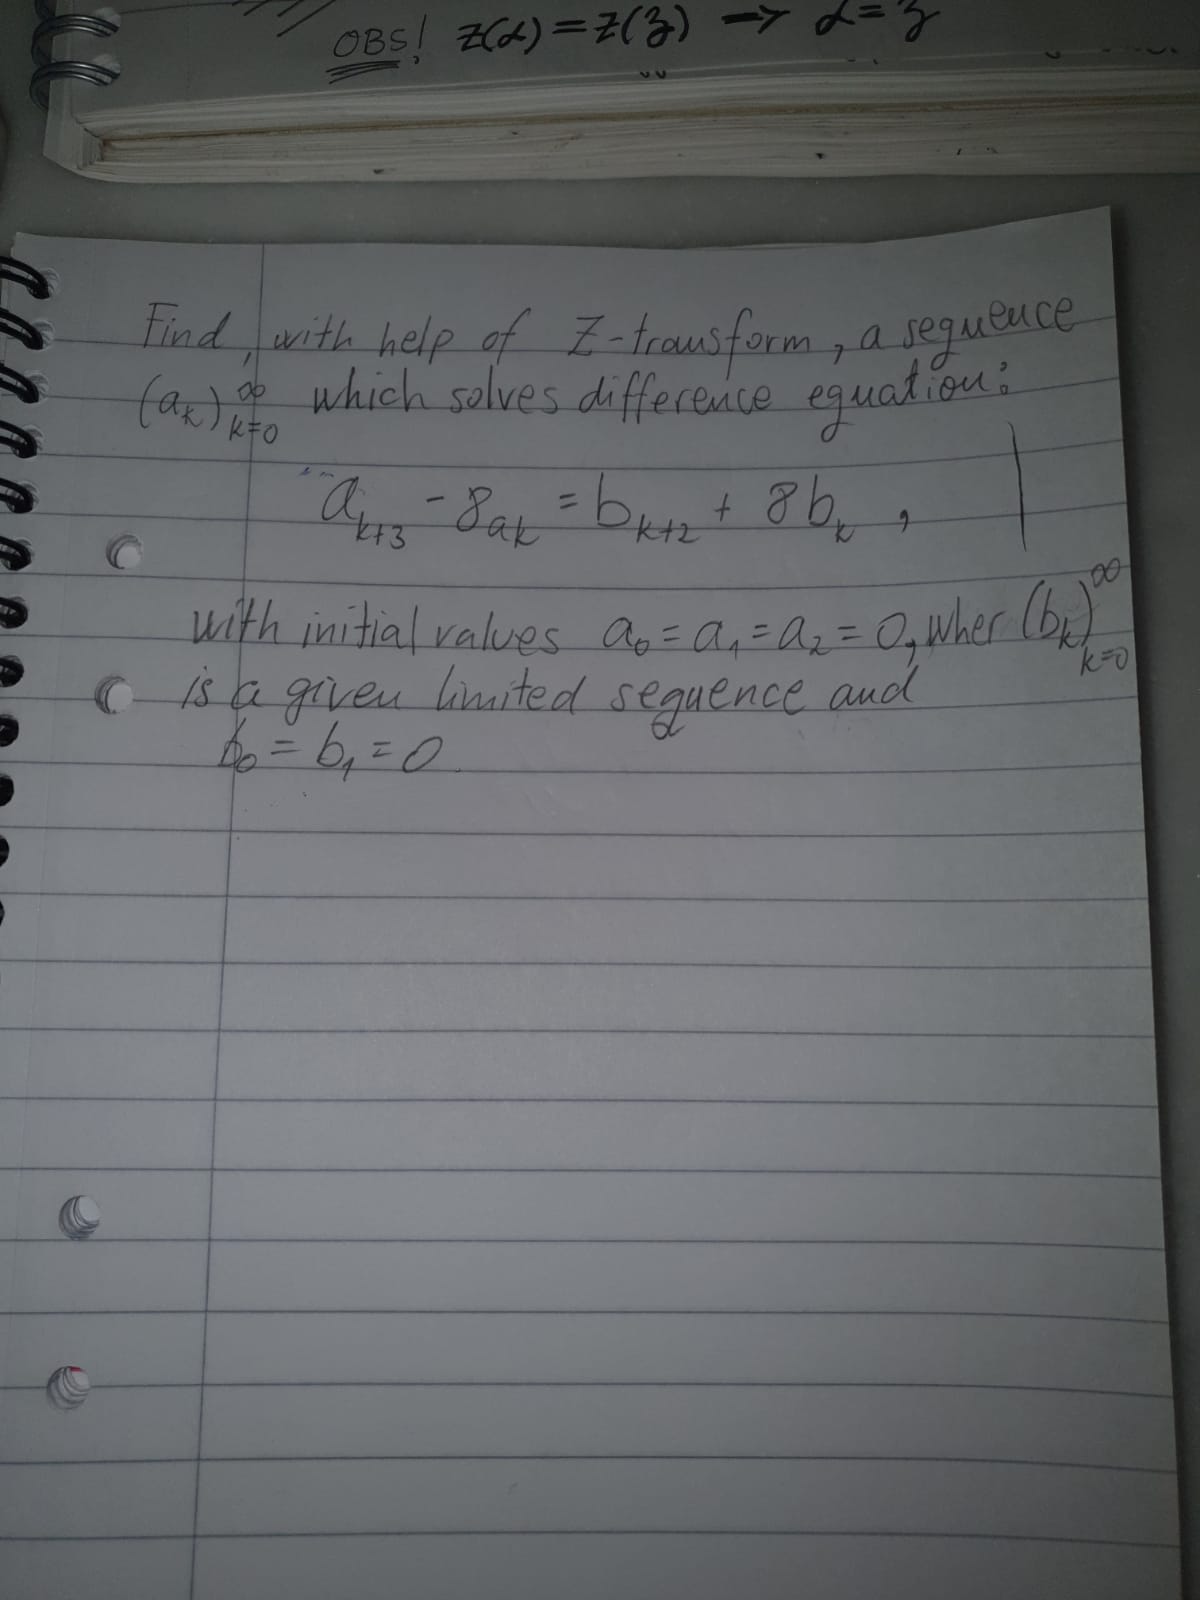 OBS! Z(α) = Z(z) → α = z
Find, with help of Z-transform, a sequence
(aₖ)∞ₖ₌₀ which solves difference equation:
aₖ₊₃ - 8aₖ = bₖ₊₂ + 8bₖ ,
with initial values a₀ = a₁ = a₂ = 0, wher (bₖ)∞ₖ₌₀
is a given limited sequence and
b₀ = b₁ = 0.